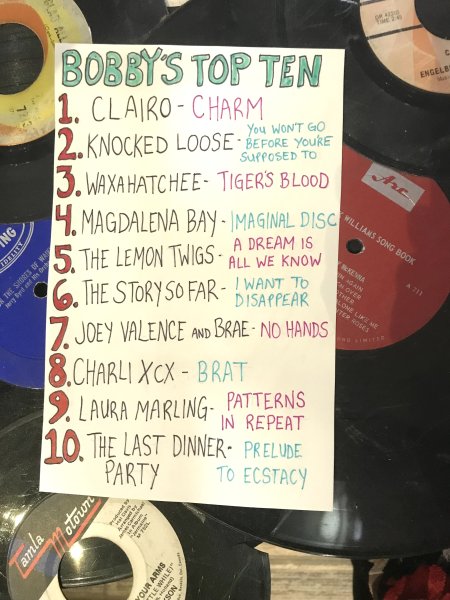 BOBBY'S TOP TEN
1. CLAIRO - CHARM
2. KNOCKED LOOSE - YOU WON'T GO
BEFORE YOU'RE
SUPPOSED TO
3. WAXAHATCHEE - TIGER'S BLOOD
4. MAGDALENA BAY - IMAGINAL DISC
5. THE LEMON TWIGS - A DREAM IS
ALL WE KNOW
6. THE STORY SO FAR - I WANT TO
DISAPPEAR
7. JOEY VALENCE AND BRAE - NO HANDS
8. CHARLI XCX - BRAT
9. LAURA MARLING - PATTERNS
IN REPEAT
10. THE LAST DINNER - PRELUDE
PARTY TO ECSTACY
ENGELBE
Arc
WILLIAMS SONG BOOK
Tamla
Motown
YOUR ARMS